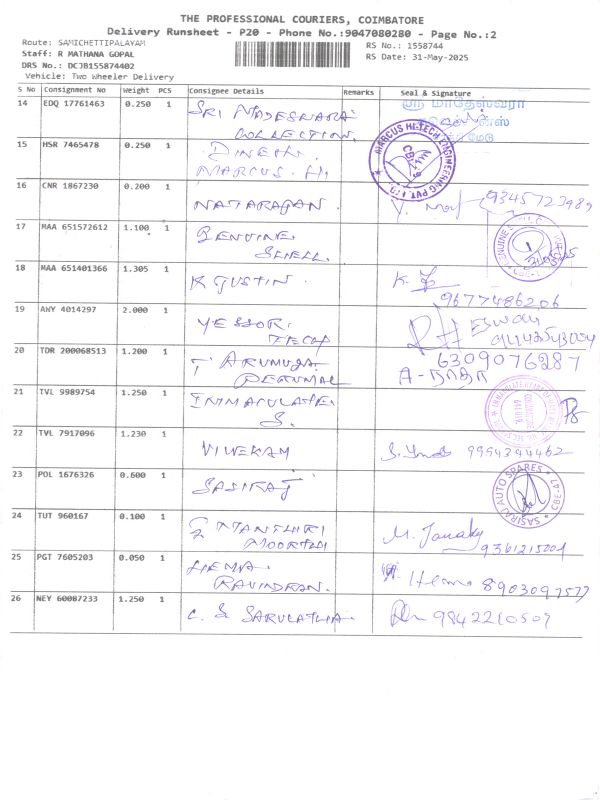 THE PROFESSIONAL COURIERS, COIMBATORE
Delivery Runsheet - P20 - Phone No.:9047080280 - Page No.:2
Route: SAMICHETTIPALAYAM RS No.: 1558744
Staff: R MATHANA GOPAL RS Date: 31-May-2025
DRS No.: DCJB155874402
Vehicle: Two Wheeler Delivery
S No Consignment No Weight PCS Consignee Details Remarks Seal & Signature
14 EDQ 17761463 0.250 1 SRI MADESWARA ஸ்ரீ மாதேஸ்வரா
COLLECTION.
15 HSR 7465478 0.250 1 DINESH. MARCUS HI-TECH ENGINEERING PVT. LTD
MARCUS. H,
16 CNR 1867230 0.200 1 NATARAJAN 9345723989
17 MAA 651572612 1.100 1 GENUINE
SHELL.
18 MAA 651401366 1.305 1 K JUSTIN. K.
9677486206
19 ANY 4014297 2.000 1 YESSOR.
TECH
20 TDR 200068513 1.200 1 T ARUMUGA 6309076287
PERUMAL
21 TVL 9989754 1.250 1 IMMACULATE.
S.
22 TVL 7917096 1.230 1 VIVEKAM 9994394462
23 POL 1676326 0.600 1 SASIRAJ SASIRAJ AUTO SPARES * CBE-47
24 TUT 960167 0.100 1 MOORTHI M. Janaky
9361215004
25 PGT 7605203 0.050 1 HEMA. Hema 8903097577
RAVINDRAN.
26 NEY 60087233 1.250 1 C. S SARULATHA. 9842210509